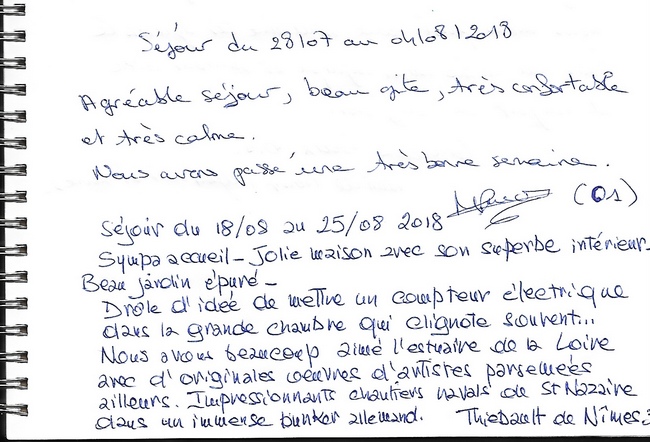 Séjour du 28/07 au 04/08/2018
Agréable séjour, beau gite, très confortable
et très calme.
Nous avons passé une très bonne semaine.
(01)
Séjour du 18/08 au 25/08 2018
Sympa accueil - Jolie maison avec son superbe intérieur -
Beau jardin épuré -
Drôle d'idée de mettre un compteur électrique
dans la grande chambre qui clignote souvent...
Nous avons beaucoup aimé l'estuaire de la Loire
avec d'originales oeuvres d'artistes parsemées
ailleurs. Impressionnants chantiers navals de St Nazaire
dans un immense bunker allemand. Thiebault de Nîmes